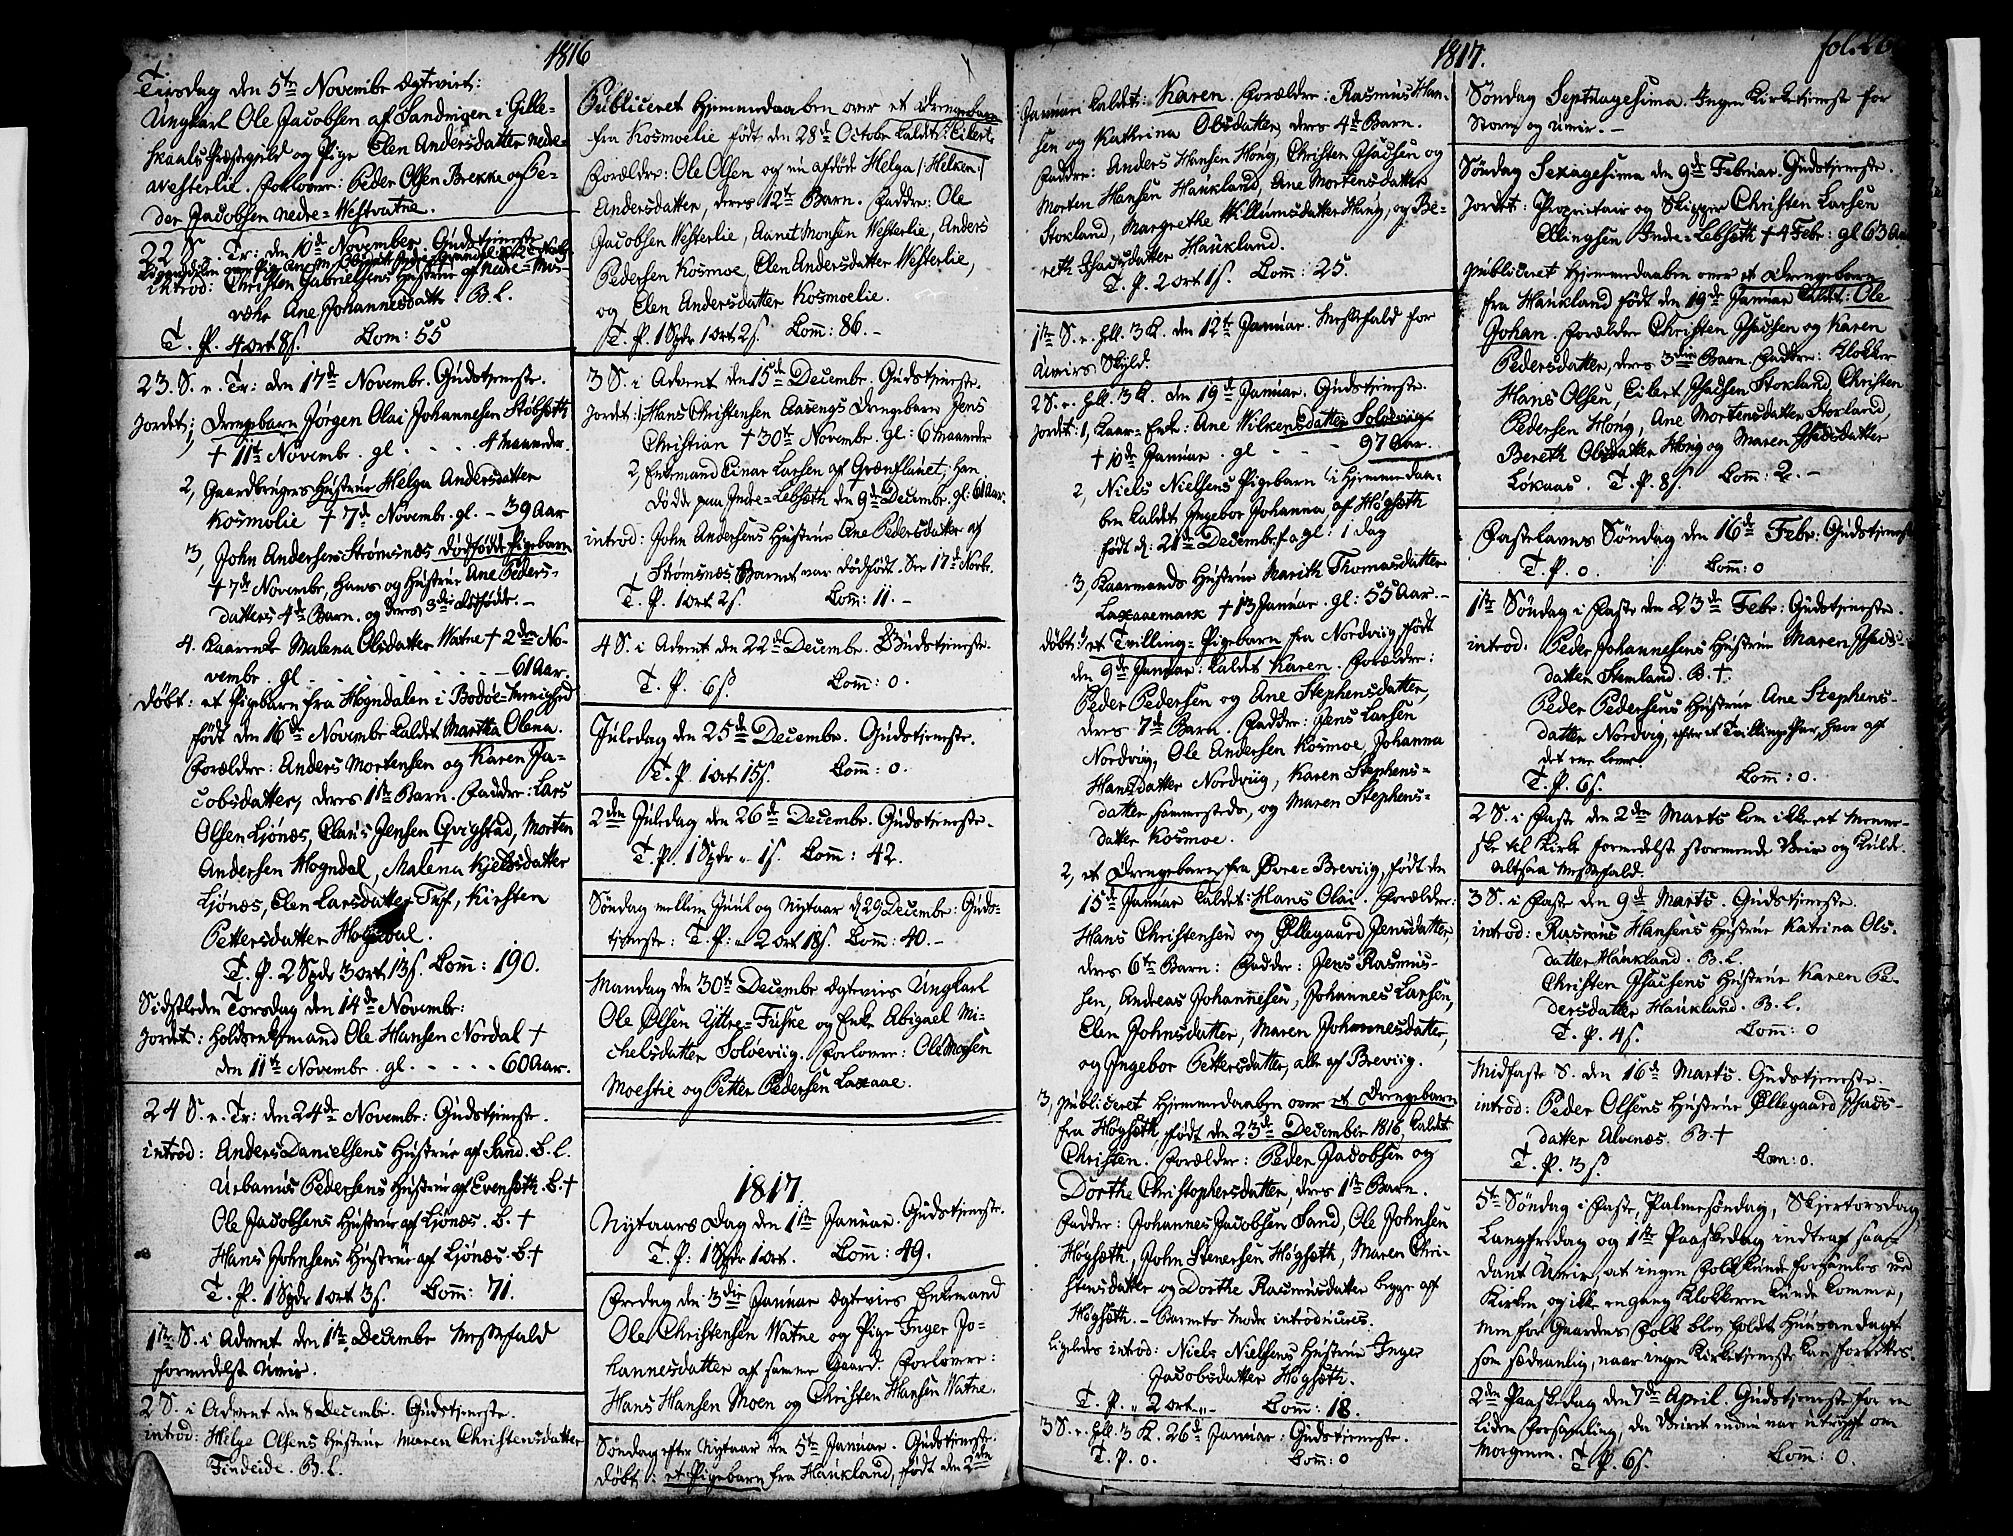 1816
Tirsdag den 5te Novembr Ægtevict:
Ungkarl Ole Jacobsen af Sandvigen i Gille-
skaals Præstegield og Pige Elen Andersdatter nedre-
Westerlie. Forlovere: Peder Olsen Brekke og Pe-
der Jacobsen nedre-Westvatne.
22 S. e. Tr: den 10de November. Gudstjeneste
introd: Christen Gabrielsens Hustrue af Nedre-
Ane Johannesdatt. B. L.
T. P. 4 ort 8 s. Com: 55
23. S. e. Tr: den 17de Novembr. Gudstjeneste.
Jordet: 1, Drengebarn Jørgen Olai Johannesen Stobseth
+ 11te Novembr. gl - - - 4 Maaneder
2, Gaardbrugers Hustrue Helga Andersdatter
Kosmolie + 7de Novembr. gl. - 39 Aar
3, John Andersens Strømsnæs dødfødde Pigebarn
+ 7de Novembr, hans og Hustrue Ane Peders-
datters 4de Barn. og deres 3die dødfødde. -
4. Kaarenke Malena Olsdatter Watne + 2den No-
vembr. gl - - - - - 61 Aar
Døbt: et Pigebarn fra Hogndalen i Bodøe-Menighed
født den 16de Novembr kaldet Martha Olena.
Forældre: Anders Mortensen og Karen Ja-
cobsdatter, deres 1ste Barn. Faddre: Lars
Olsen Ljønæs, Claus Jensen Qvigstad, Morten
Andersen Hogndal, Malena Kjelsdatter
Ljønæs, Elen Larsdatter Tuf, Kirsten
Pettersdatter Hogndal.
T. P. 2 Spdr 3 ort 13 s. Com: 190.
Sidstleden Torsdag den 14de Novembr:
Jordet: Ole Hansen Nordal +
den 11te Novembr. gl. - - - - - 60 Aar.
24 S. e. Tr: den 24de Novembr: Gudstjeneste.
introd: Anders Danielsens Hustrue af Sand. B. L.
Urbanus Pedersens Hustrue af Evenseth. B. +
Ole Jacobsens Hustrue af Ljønæs. B. +
Hans Johnsens Hustrue af Ljønæs. B. +
T. P. 1 Spdr 1 ort 3 s. Com: 71.
1ste S. i Advent den 1ste Decembr Messefald
formedelst Uveir.
2 S. i Advent den 8 Decembr. Gudstjeneste.
introd: Helge Olsens Hustrue Maren Christensdatter
Findeide. B. L.
Publiceret Hjemmedaaben over et Drengebarn
fra Kosmoelie født den 28de Octobr kaldt: Eilert.
Forældre: Ole Olsen og nu afdøde Helga /:Helken:/
Andersdatter, deres 12te Barn. Faddre: Ole
Jacobsen Westerlie, Aanet Monsen Westerlie, Anders
Pedersen Kosmoe, Elen Andersdatter Westerlie,
og Elen Andersdatter Kosmoelie.
T. P. 1 Spdr 1 ort 2 s. Com: 86. -
3 S. i Advent den 15de Decembr. Gudstjeneste.
Jordet: 1, Hans Christensen Aasengs Drengebarn Jens
Christian + 30te Novembr. gl: 6 Maaneder
2, Enkemand Einar Larsen af Grønflauet; han
døde paa Indre-Lebseth den 9de Decembr. gl: 61 Aar.
introd: John Andersens Hustrue Ane Pedersdatter af
Strømsnæs Barnet var dødfødt. See 17de Novbr.
T. P. 1 ort 2 s. Com: 11. -
4 S. i Advent den 22de Decembr. Gudstjeneste.
T. P. 6 s. Com: 0.
Juledag den 25de Decembr. Gudstjeneste.
T. P. 1 ort 15 s. Com: 0.
2den Juledag den 26de Decembr. Gudstjeneste.
T. P. 1 Spdr „ 1 s. Com: 42.
Søndag mellem Juul og Nytaar d. 29 Decembr: Guds-
tjeneste: T. P. „ 2 ort 18 s. Com: 40. -
Mandag den 30te Decembr Ægtevies Ungkarl
Ole Olsen Yttre-Fuske og Enke Abigael Mi-
chelsdatter Soløeviig. Forlovere: Ole Monsen
Moestie og Petter Pedersen Laxaae.
1817.
Nytaars Dag den 1ste Januar. Gudstjeneste.
T. P: 1 Spdr 1 ort. Com: 49.
Fredag den 3die Januar Ægtevies Enkemand
Ole Christensen Watne og Pige Inger Jo-
hannesdatter af samme Gaard. Forlovere:
Hans Hansen Moen og Christen Hansen Watne.
Søndag efter Nytaar den 5te Januar. Gudstjeneste.
Døbt: et Pigebarn fra Haukland, født den 2den
1817.
fol.
Januar kaldet: Karen. Forældre: Rasmus Han-
sen og Kathrina Olsdatter, deres 4de Barn.
Faddre: Anders Hansen Hong, Christen Isacsen og
Morten Hansen Haukland, Ane Mortensdatter
Stokland, Margrethe Willumsdatter Hong, og Be-
reth Isacsdatter Haukland.
T. P. 2 ort 1 s. Com: 25.
1ste S. e. Hell. 3 K. den 12te Januar. Messefald for
Uveirs Skyld.
2 S. e. Hell. 3 K. den 19de Januar. Gudstjeneste.
Jordet: 1, Kaar-Enke: Ane Wilkensdatter Soløeviig
+ 10de Januar. gl - - - 97 Aar.
2, Niels Nielsens Pigebarn i Hjemmedaa-
ben kaldet Ingebor Johanna af Høgseth
født d: 21de Decembr. gl: 1 dag
3, Kaarmands Hustrue Marith Thomasdatter
Laxaaemark + 13 Januar. gl: 55 Aar. -
Døbt: 1, et Tvilling-Pigebarn fra Nordviig født
den 9de Januar: kaldet Karen. Forældre:
Peder Pedersen og Ane Stephensdatter,
deres 7de Barn. Faddre: Jens Larsen
Nordviig, Ole Andersen Kosmoe, Johanna
Hansdatter Nordviig, Karen Stephens-
datter sammesteds, og Maren Stephens-
datter Kosmoe.
2, et Drengebarn fra Øvre-Breviig, født den
15de Januar kaldet: Hans Olai. Forældre:
Hans Christensen og Øllegaard Jensdatter,
deres 6te Barn: Faddre: Jens Rasmus-
sen, Andreas Johannesen, Johannes Larsen,
Elen Johnsdatter, Maren Johannesdatter,
og Ingebor Pettersdatter, alle af Breviig.
3, Publiceret Hjemmedaaben over et Drengebarn
fra Høgseth, født den 23de December 1816, kaldet
Christen. Forældre: Peder Jacobsen og
Dorthe Christophersdatter, deres 1ste Barn.
Faddre: Johannes Jacobsen Sand, Ole Johnsen
Høgseth, John Stenersen Høgseth, Maren Chri-
stensdatter og Dorthe Rasmusdatter begge af
Høgseth. - Barnets Moder introduceres.
Ligeledes introd: Niels Nielsens Hustrue Inger
Jacobsdatter Høgseth.
T. P. „ 2 ort „ Com: 18.
3 S. e. Hell. 3 K. 26de Januar: Gudstjeneste.
T. P. 0. Com: 0
Søndag Septuagesima. Ingen Kirketjeneste for
Storm og Uveir. -
Søndag Sexagesima den 9de Februar. Gudstjeneste.
Jordet: Proprietair og Skipper Christen Larsen
Ellingsen Indre-Lebseth + 4 Febr: gl 63 Aar
Publiceret Hjemmedaaben over et Drengebarn
fra Haukland født den 19de Januar kaldet: Ole
Johan. Forældre Christen Isacsen og Karen
Pedersdatter, deres 3die Barn. Faddre: Klokker
Hans Olsen, Eilert Isacsen Stokland, Christen
Pedersen Hong, Ane Mortensdatter Storland,
Bereth Olsdatter Hong og Maren Isacsdatter
Løkaas. T. P. 8 s. Com: 2. -
Fastelavns Søndag den 16de Febr: Gudstjeneste
T. P. 0. Com: 0
1ste Søndag i Faste den 23de Febr: Gudstjeneste.
introd: Peder Johannesens Hustrue Maren Isacs-
datter Stemland. B. +.
Peder Pedersens Hustrue Ane Stephens-
datter Nordviig, efter et Tvillinge Par, hvor af
det ene lever.
T. P. 6 s. Com: 0.
2 S. i Faste den 2de Marts kom ikke et Menne-
ske til Kirke formedelst stormende Veir og Kulde.
Altsaa Messefald.
3 S. i Faste den 9de Marts. Gudstjeneste.
introd: Rasmus Hansens Hustrue Katrina Ols-
datter Haukland. B. L.
Christen Isacsens Hustrue Karen Pe-
dersdatter Haukland. B. L.
T. P. 4 s. Com: 0
Midfaste S. den 16de Marts. Gudstjeneste -
introd: Peder Olsens Hustrue Øllegaard Isacs-
datter Alvenæs. B. +
T. P. 3 s. Com: 0.
5te Søndag i Faste, Palmesøndag, Skjertorsdag,
Langfredag og 1ste Paaskedag indtraf saa-
dant Uveir, at ingen Folk kunde forsamles ved
Kirken og ikke engang Klokkeren kunde komme,
Men for Gaardens Folk blev holdt Huusandagt
som sædvanlig, naar ingen Kirketjeneste kan forrettes.
2den Paaskedag den 7de April. Gudstjeneste for en
liden Forsamling, da Veiret endnu var utrygt om
Morgenen. T. P. 6 s. Com: 0.